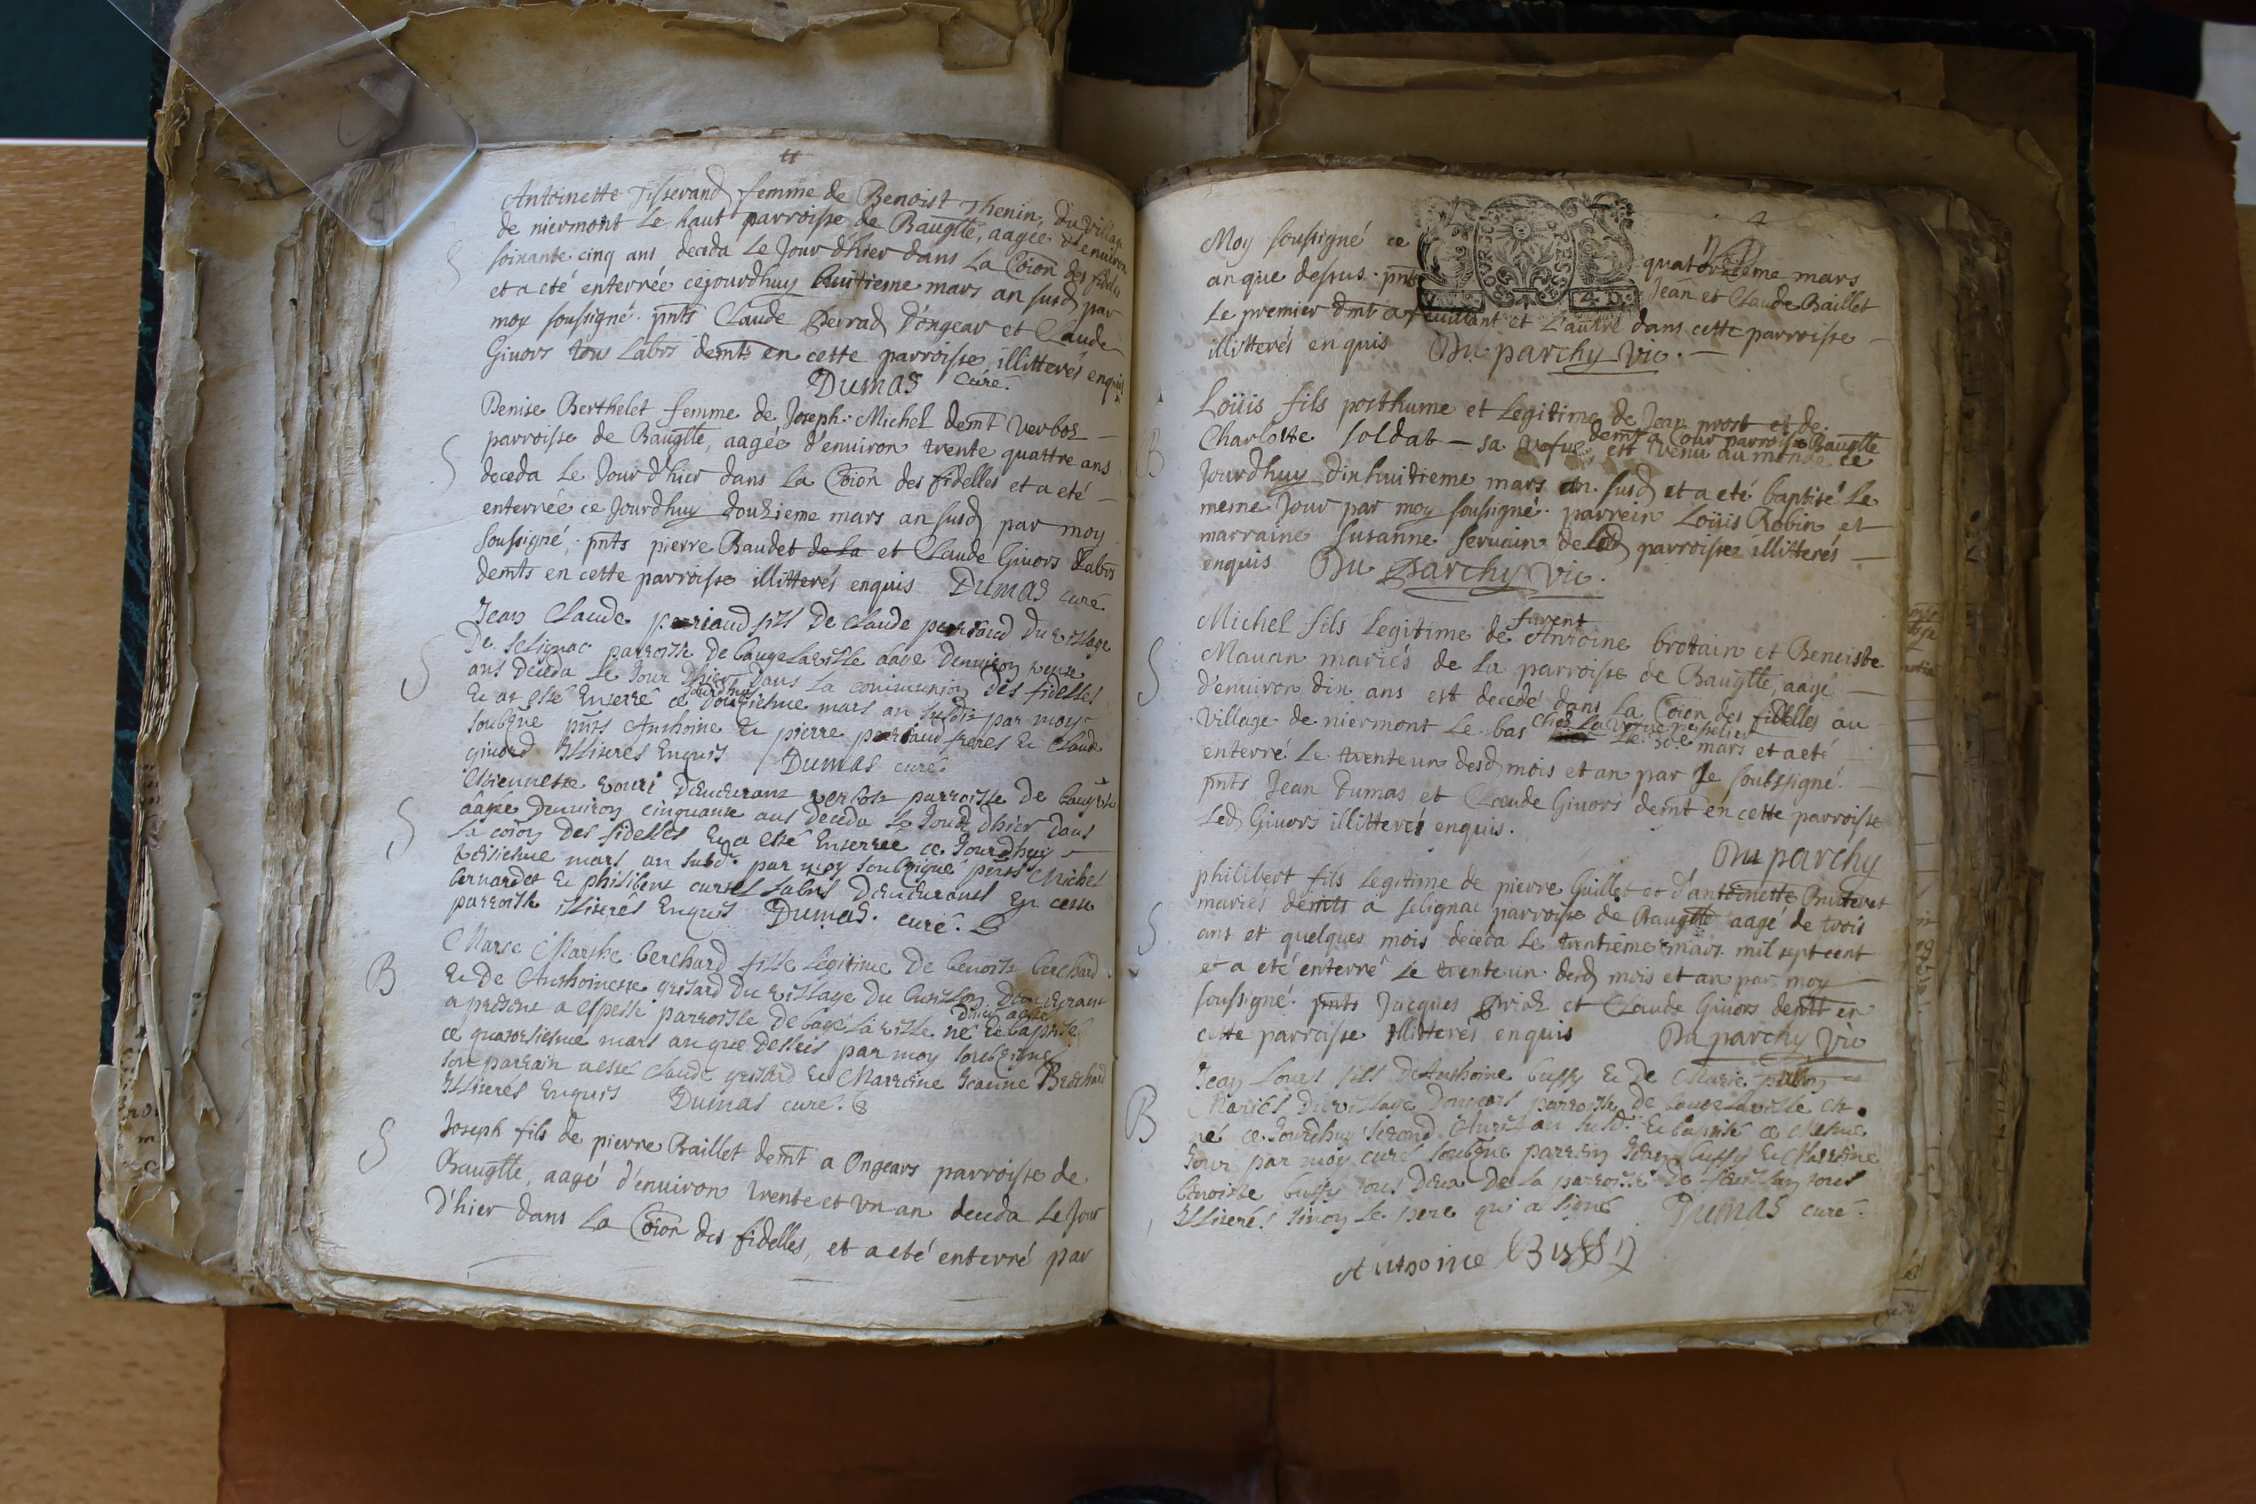 Antoinette Tisserand femme de Benoist Thenin, du villag
de niermont Le haut parroisse de Bauglle, aagée d'environ
S soixante cinq ans deceda Le Jour d'hier dans La Coion des fidelles
et a eté enterrée cejourdhuy huitieme mars an susd par
moy soussigné. pnts Claude Perrad d'ongear et Claude
Givors tous Labrs demts en cette parroisse illitterés enquis
DUMAS curé.
Denise Berthelet femme de Joseph Michel demt verbos
S parroisse de Bauglle, aagée d'environ trente quattre ans
deceda Le Jour d'hier dans La Coion des fidelles et a eté
enterrée ce Jourdhuy douzieme mars an susd par moy
soussigné, pnts pierre Baudet de La et Claude Givors Labrs
demts en cette parroisse illitterés enquis DUMAS curé
Jean Claude perriaud fils De Claude perriaud Du village
De Selignac parroisse De baugelaville aagé Denviron
S ans Deceda Le Jour Dhier Dans La communion Des fidelles
Et at esté Enterré ce Jourdhuy mars an susdit par moy
soubsigné pnts Anthoine Et pierre perriaud freres Et Claude
givord Illiterés Enquis DUMAS curé
Estiennette Demeurant verbos parroisse De
S aagée Denviron cinquante ans Deceda Le Jour Dhier Dans
La coion Des fidelles Et a esté Enterrée ce Jourdhuy
mars an susd. par moy soubsigné pnts Michel
bernardet Et philibert curtet Labrs Demeurants En cette
parroisse Illiterés Enquis DUMAS. curé.
B Marie Marthe berchard fille Legitime De benoist berchard
Et De Anthoinette grisard Du village Du Demeurant
a present a espesse parroisse De Bagé La ville né Et baptisé
ce quatorsiesme mars an que Dessus par moy soubsigné
son parrain a esté Claude grisard Et Marreine Jeanne Brochard
Illiterés Enquis DUMAS curé.
S Joseph fils de pierre Baillet demt a Ongears parroisse de
Bauglle, aagé d'environ trente et un an deceda Le Jour
d'hier dans La Coion des fidelles, et a eté enterré par
Moy soussigné ce quatorzieme mars
an que dessus. pnts Jean et Claude Baillet
Le premier dmt a feuillant et L'autre dans cette parroisse
illitterés enquis Du parchy vic.
Loüis fils posthume et Legitime de Jean prost et de
demt a Cour parroisse Bauglle
B Charlotte Soldat sa vefue, est venu au monde ce
Jourdhuy dixhuitieme mars an susd et a eté baptisé Le
meme Jour par moy soussigné. parrein Loüis Robin et
marraine Susanne Servain de Lad parroisse illitterés
enquis Du Parchy vic.
furent
Michel fils Legitime de Antoine brotain et Benoiste
S Mauan mariés de La parroisse de Bauglle, aagé
d'environ dix ans est decedé dans La Coion des fidelles au
village de niermont Le bas chez La vefue
Le 30.e mars et a eté
enterré Le trente un desd mois et an par Je soubssigné.
pnts Jean Dumas et Claude Givors demt en cette parroisse
Led Givors illitterés enquis.
Du parchy
philibert fils Legitime de pierre Guillet et d'antoinette Buiteret
mariés demts a selignac parroisse de Bauglle aagé de trois
S ans et quelques mois deceda Le trentieme mars mil sept cent
et a eté enterré Le trente un desd mois et an par moy
soussigné. pnts Jacques et Claude Givors demtt en
cette parroisse illitterés enquis Du parchy vic
Jean Louis fils De Anthoine bussy Et De Marie
Mariés Du village parroisse De baugelaville est
B né ce Jourdhuy second Avril an susd. Et baptisé ce Mesme
Jour par moy curé soubsigné parrein Jean bussy Et Marreine
benoiste bussy tous deux De La parroisse De tous
Illiterés sinon Le pere qui a signé DUMAS curé.
Antoine Bussy